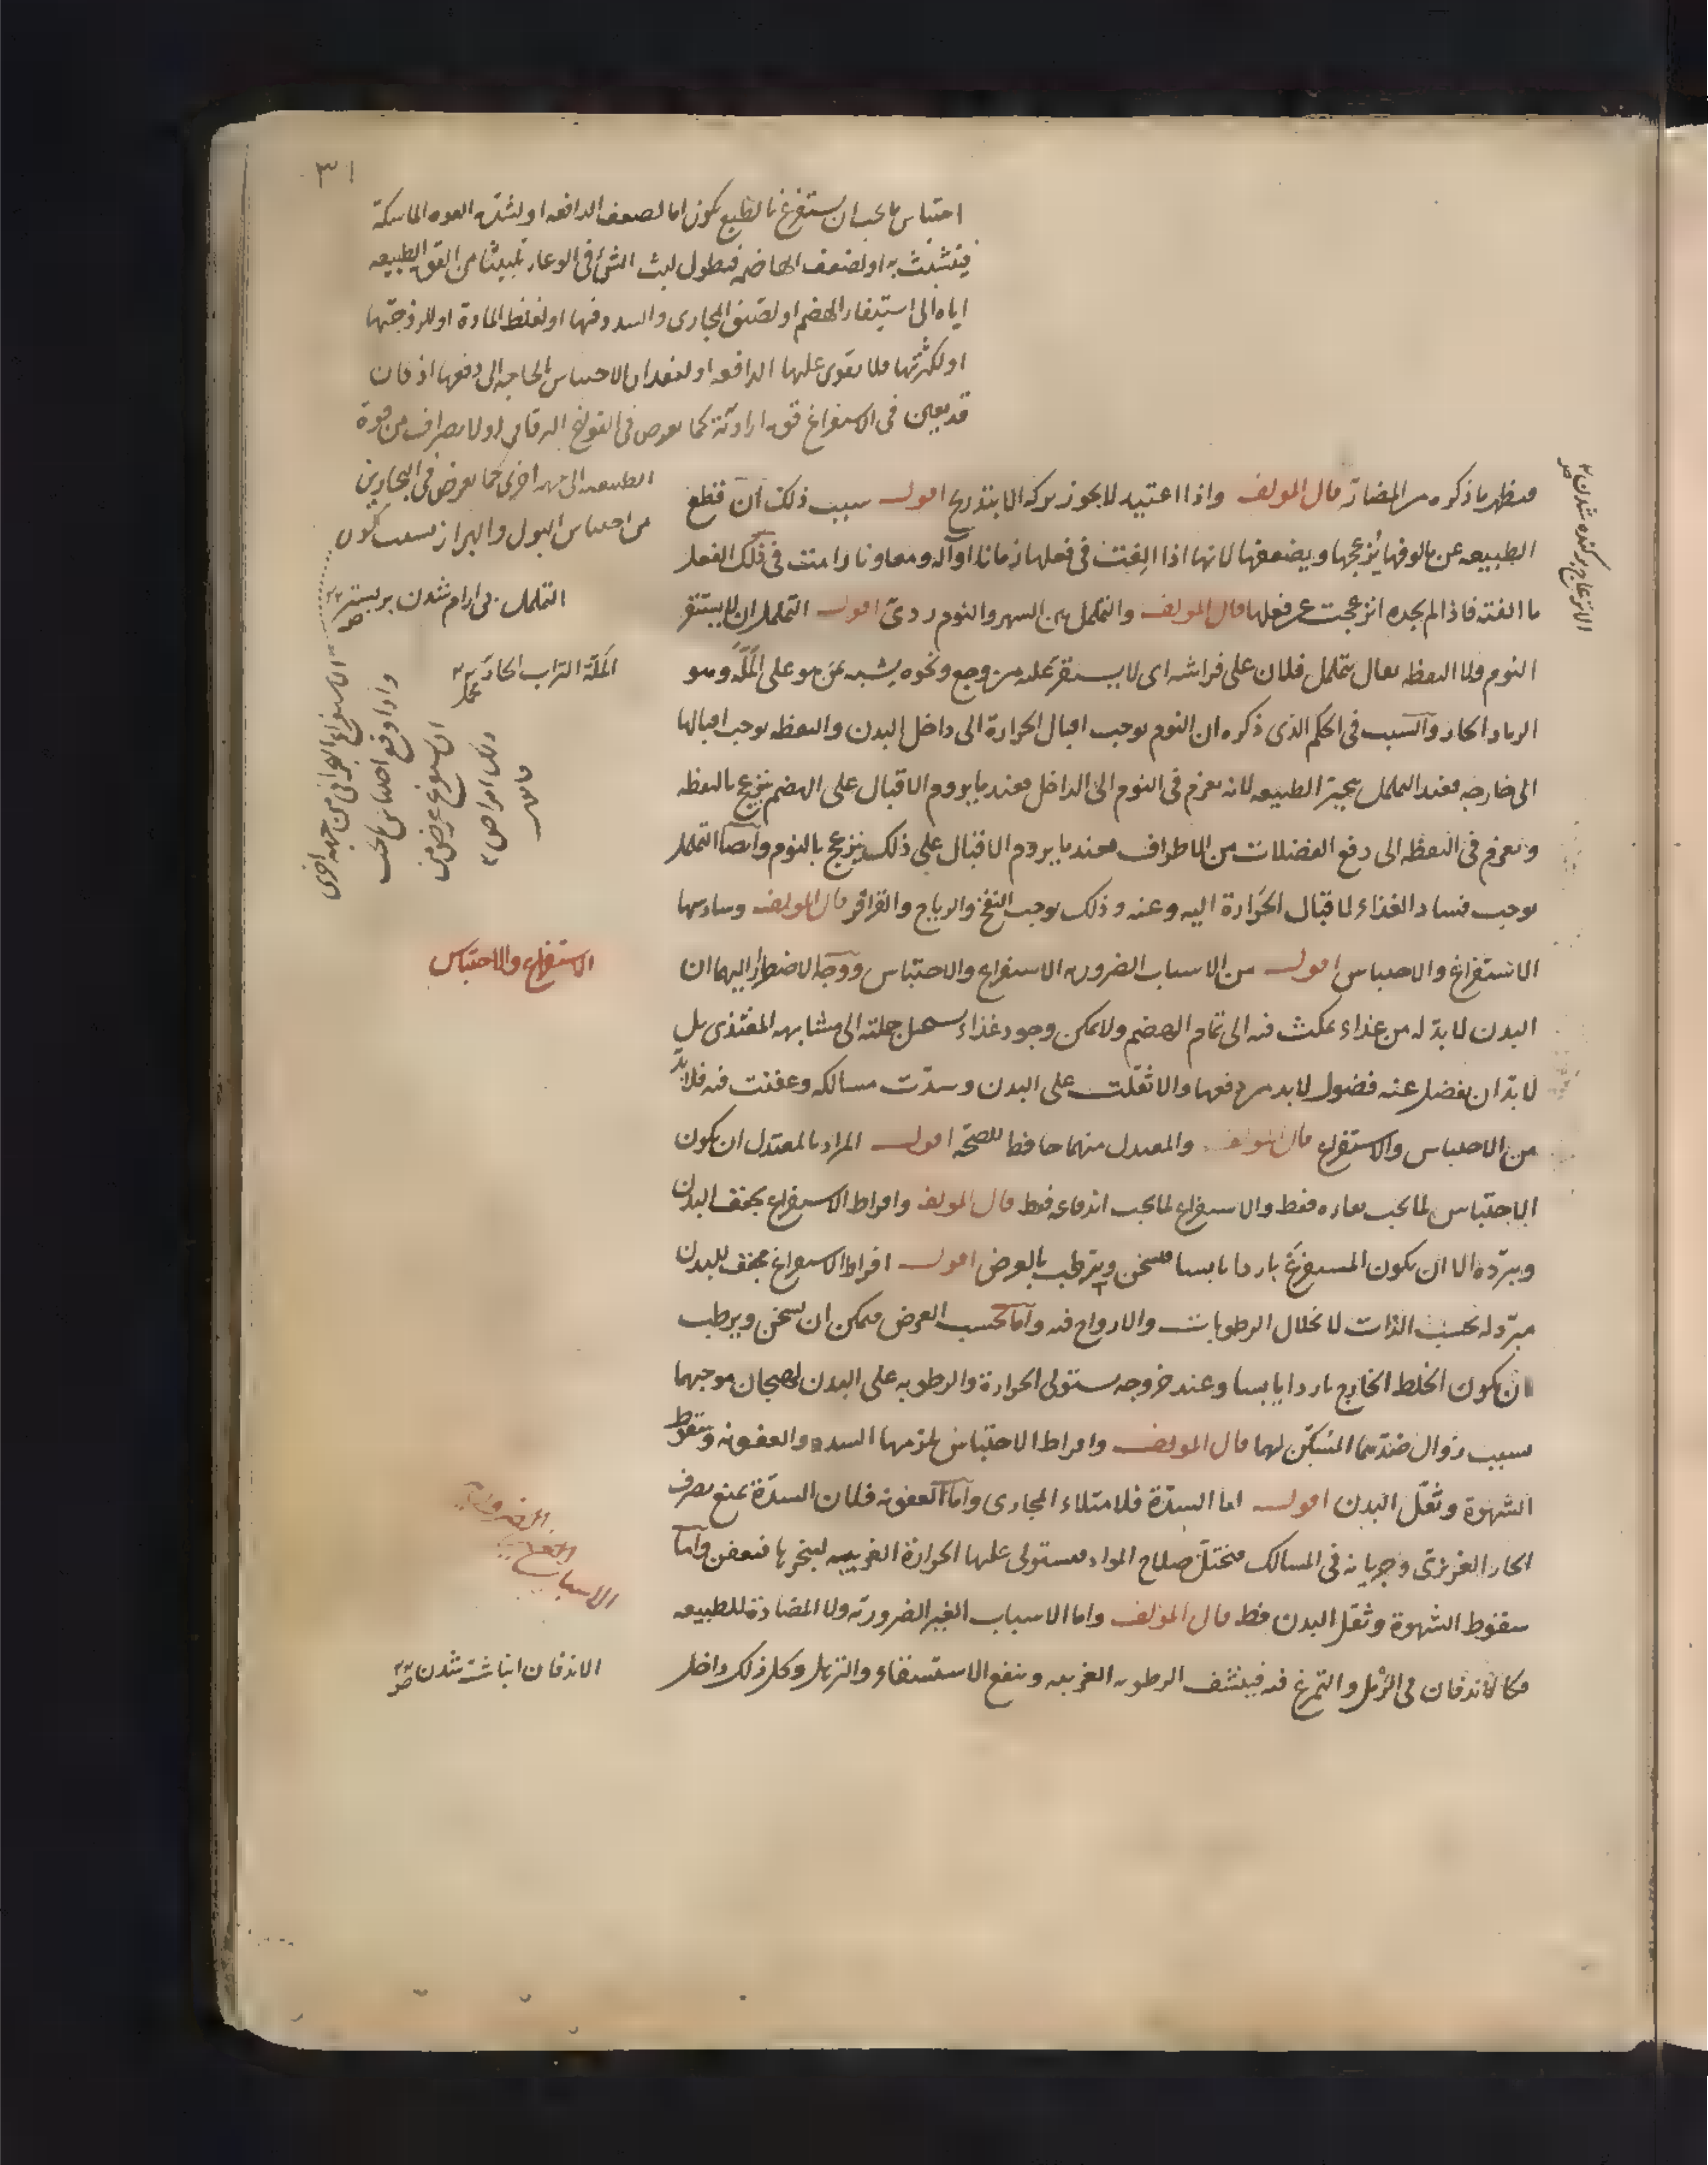 ٣١
احتباس ما يجب ان يستفرغ بالطبع يكون اما لضعف الدافعه او لشدة القوه الماسكة
فيتشبث به او لضعف الهاضمه فيطول لبث الشئ فى الوعاء تلبيثا من القوى الطبيعيه
اياه الى استيفاء الهضم او لضيق المجارى والسدد فيها او لغلظ المادة او للزوجتها
او لكثرتها فلا يقوى عليها الدافعه او لفقدان الاحساس بالحاجه الى دفعها اذ كان
قد يعين فى الاستفراغ قوه ارادية كما يعرض فى القولنج اليرقانى او لانصراف من قوة
الطبيعه الى جهه اخرى كما يعرض فى البحارين
من احتباس البول والبراز بسبب كون
الاستفراغ البحرانى من جهه اخرى
واذا وقع احتباس ما يجب
ان يستفرغ عرض من
ذلك امراض
قانون
التململ بى ارام شدن بر بستر
الملّة التراب الحارّ
الانزعاج بر كنده شدن
فيظهر ما ذكره من المضارّ قال المولف واذا اعتيد لا يجوز تركه الا بتدريج اقول سبب ذلك ان قطع
الطبيعه عن مالوفها يُزعجها ويضعفها لانها اذا الِفت فى فعلها زمانا او آلة ومعاونا رامت فى ذلك الفعل
ما الفته فاذا لم يجده انزعجت عن فعلها قال المولف والتململ بين السهر والنوم ردىّ اقول التململ ان لا يستقر
النوم ولا اليقظه يقال يتململ فلان على فراشه اى لا يستقر عليه من وجع ونحوه يشبه بمن هو على المَلّة وهو
الرماد الحار والسبب فى الحكم الذى ذكره ان النوم يوجب اقبال الحرارة الى داخل البدن واليقظه يوجب اقبالها
الى خارجه فعند التململ يتحير الطبيعه لانه يعزم فى النوم الى الداخل فعند ما يروم الاقبال على الهضم ينزعج باليقظه
ويعزم فى اليقظه الى دفع الفضلات من الاطراف فعند ما يروم الاقبال على ذلك ينزعج بالنوم وايضا التململ
يوجب فساد الغذاء لاقبال الحرارة اليه وعنه وذلك يوجب النفخ والرياح والقراقر قال المولف وسادسها
الاستفراغ والاحتباس اقول من الاسباب الضروريه الاستفراغ والاحتباس ووجه الاضطرار اليهما ان
البدن لا بدّ له من غذاء يمكث فيه الى تمام الهضم ولا يمكن وجود غذاء يستحيل جملته الى مشابهه المغتذى بل
لا بدّ ان يفضل عنه فضول لا بد من دفعها والا ثقلت على البدن وسدّت مسالكه وعفنت فيه فلا بدّ
من الاحتباس والاستفراغ قال المولف والمعتدل منهما حافظ للصحّة اقول المراد بالمعتدل ان يكون
الاحتباس لما يجب بقاءه فقط والاستفراغ لما يجب اندفاعه فقط قال المولف وافراط الاستفراغ يجفف البدن
ويبرّده الا ان يكون المستفرَغ باردا يابسا فيسخن ويترطب بالعرض اقول افراط الاستفراغ مجفف للبدن
مبرّد له بحسب الذات لانحلال الرطوبات والارواح فيه واما بحسب العرض فيمكن ان يسخن ويرطب
ان يكون الخلط الخارج باردا يابسا وعند خروجه يستولى الحرارة والرطوبه على البدن لهيجان موجبهما
بسبب زوال ضدّهما المسَكّن لهما قال المولف وافراط الاحتباس يلزمها السدد والعفونه وسقوط
الشهوة وثقل البدن اقول اما السدّة فلامتلاء المجارى واما العفونه فلان السدّة يمنع تصرف
الحار الغريزى وجريانه فى المسالك فيختلّ صلاح المواد فيستولى عليها الحرارة الغريبه ليبخرها فتعفن واما
سقوط الشهوة وثقل البدن فظ قال المولف واما الاسباب الغير الضروريّه ولا المضادة للطبيعه
فكالاندفان فى الرّمل والتمرغ فيه فينشف الرطوبه الغريبه وينفع الاستسقاء والترهل وكل ذلك داخل
الاستفراغ والاحتباس
الاسباب الغير الضروريه
الاندفان انباشته شدن